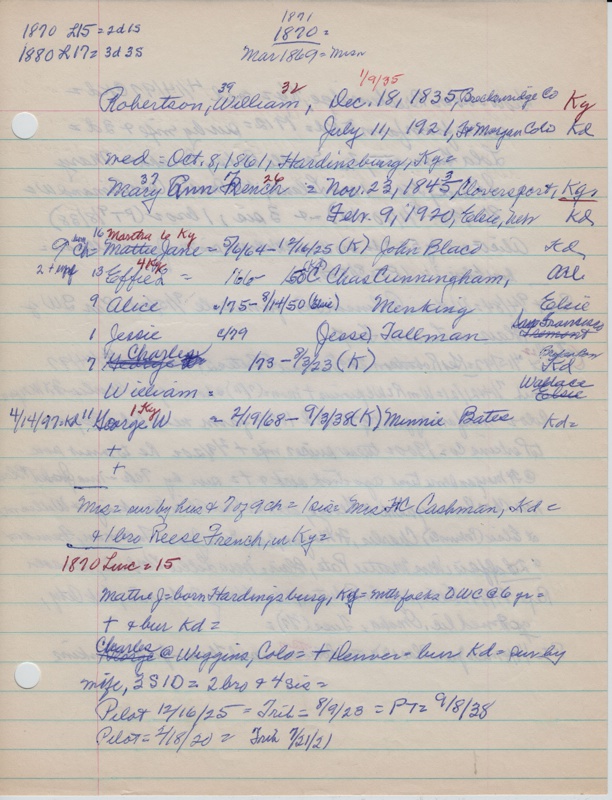 1870 L15 = 2d 1S
1871
1880 L17 = 3d 3S
1870 =
Mar 1869 = Mssn
39 32 1/9/35
Robertson, William, Dec. 18, 1835, Breckinridge Co Ky
July 11, 1921, Ft Morgan Colo Kd
med = Oct. 8, 1861, Hardinsburg, Ky =
37 26 3
Mary Ann French = Nov. 23, 1845, Cloversport, Ky
Febr. 9, 1920, Elsie, Kd
16 Martha 6 Ky
9 Ch = Mattie Jane = 5/6/64 - 12/16/25 (K) John Black Kd
4 Ky
13 Effie = 166 Chas Cunningham, Ark
9 Alice = 175 - 8/14/50 (Elsie) Menking Elsie
San Francisco
1 Jessie 4/79 Jesse Tallman Fremont
Charles
7 George 173 - 8/3/23 (K) Kd
Wallace
William = Elsie
1 Ky
4/14/97 = Kd 11 George W = 2/19/68 - 9/3/38 (K) Minnie Bates Kd =
+
+
Mrs = sur by hus & 7 of 9 ch = 1 sis = Mrs HC Cashman, Kd =
& 1 bro Reese French, in Ky =
1870 Linc = 15
Mattie J = born Hardingsburg, Ky = with folks OWC @ 6 yr =
+ & bur Kd =
Charles
George @ Wiggins, Colo = + Denver = bur Kd = sur by
wife, 3S 1D = 2 bro & 4 sis =
Pilot 12/16/25 = Trib = 8/9/23 = PT = 9/8/38
Pilot = 2/18/20 = Trib 7/21/21